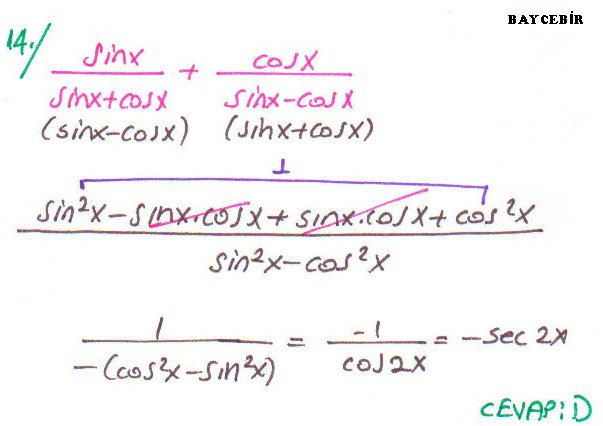 BAYCEBİR
14./ sinx/(sinx+cosx) + cosx/(sinx-cosx)
(sinx-cosx) (sinx+cosx)
1
sin²x-sinx.cosx+sinx.cosx+cos²x
sin²x-cos²x
1/(-(cos²x-sin²x)) = -1/cos2x = -sec2x
CEVAP:D